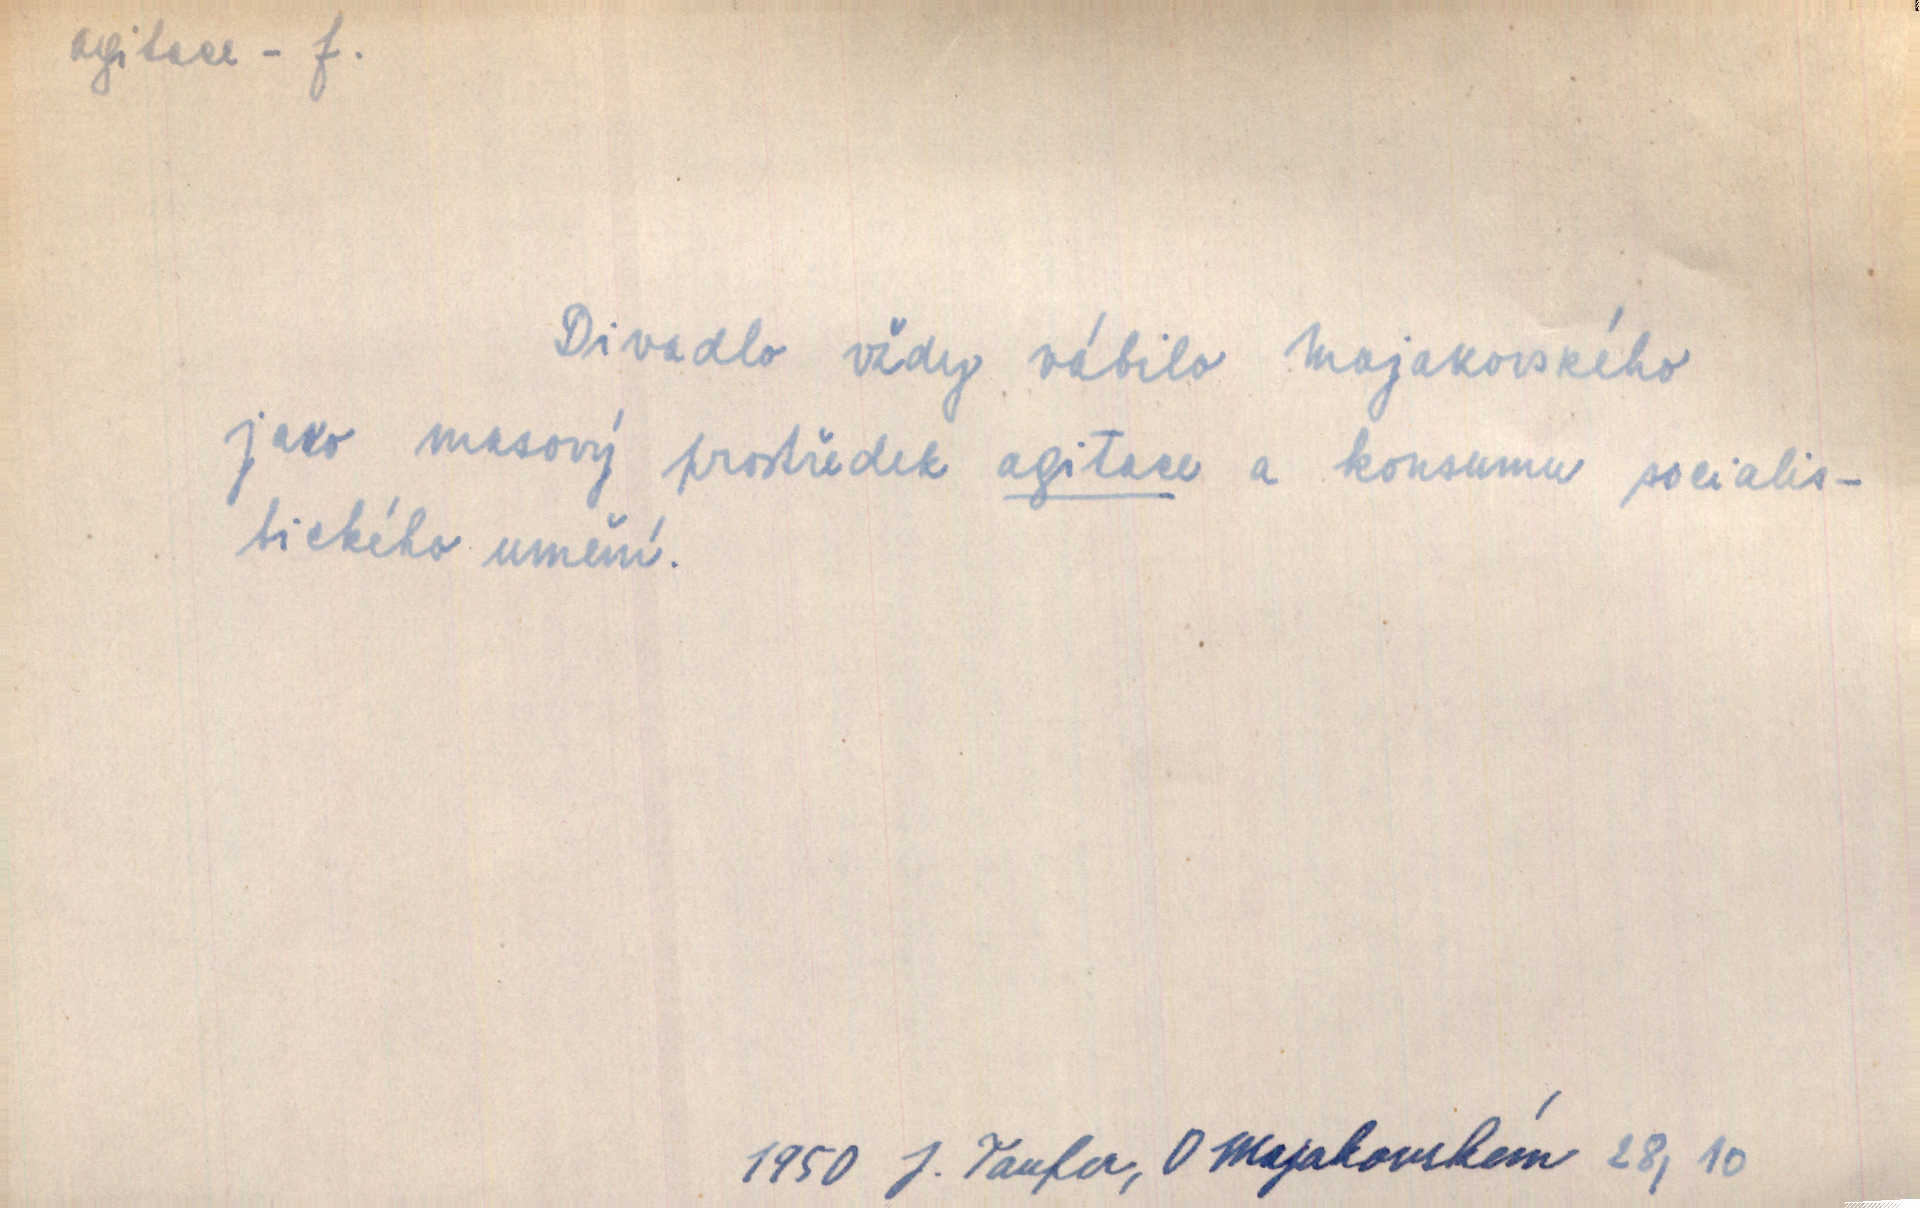 agitace - f.
Divadlo vždy vábilo Majakovského
jako masový prostředek agitace a konsumu socialis-
tického umění.
1950 J. Taufer, O Majakovském 28, 10